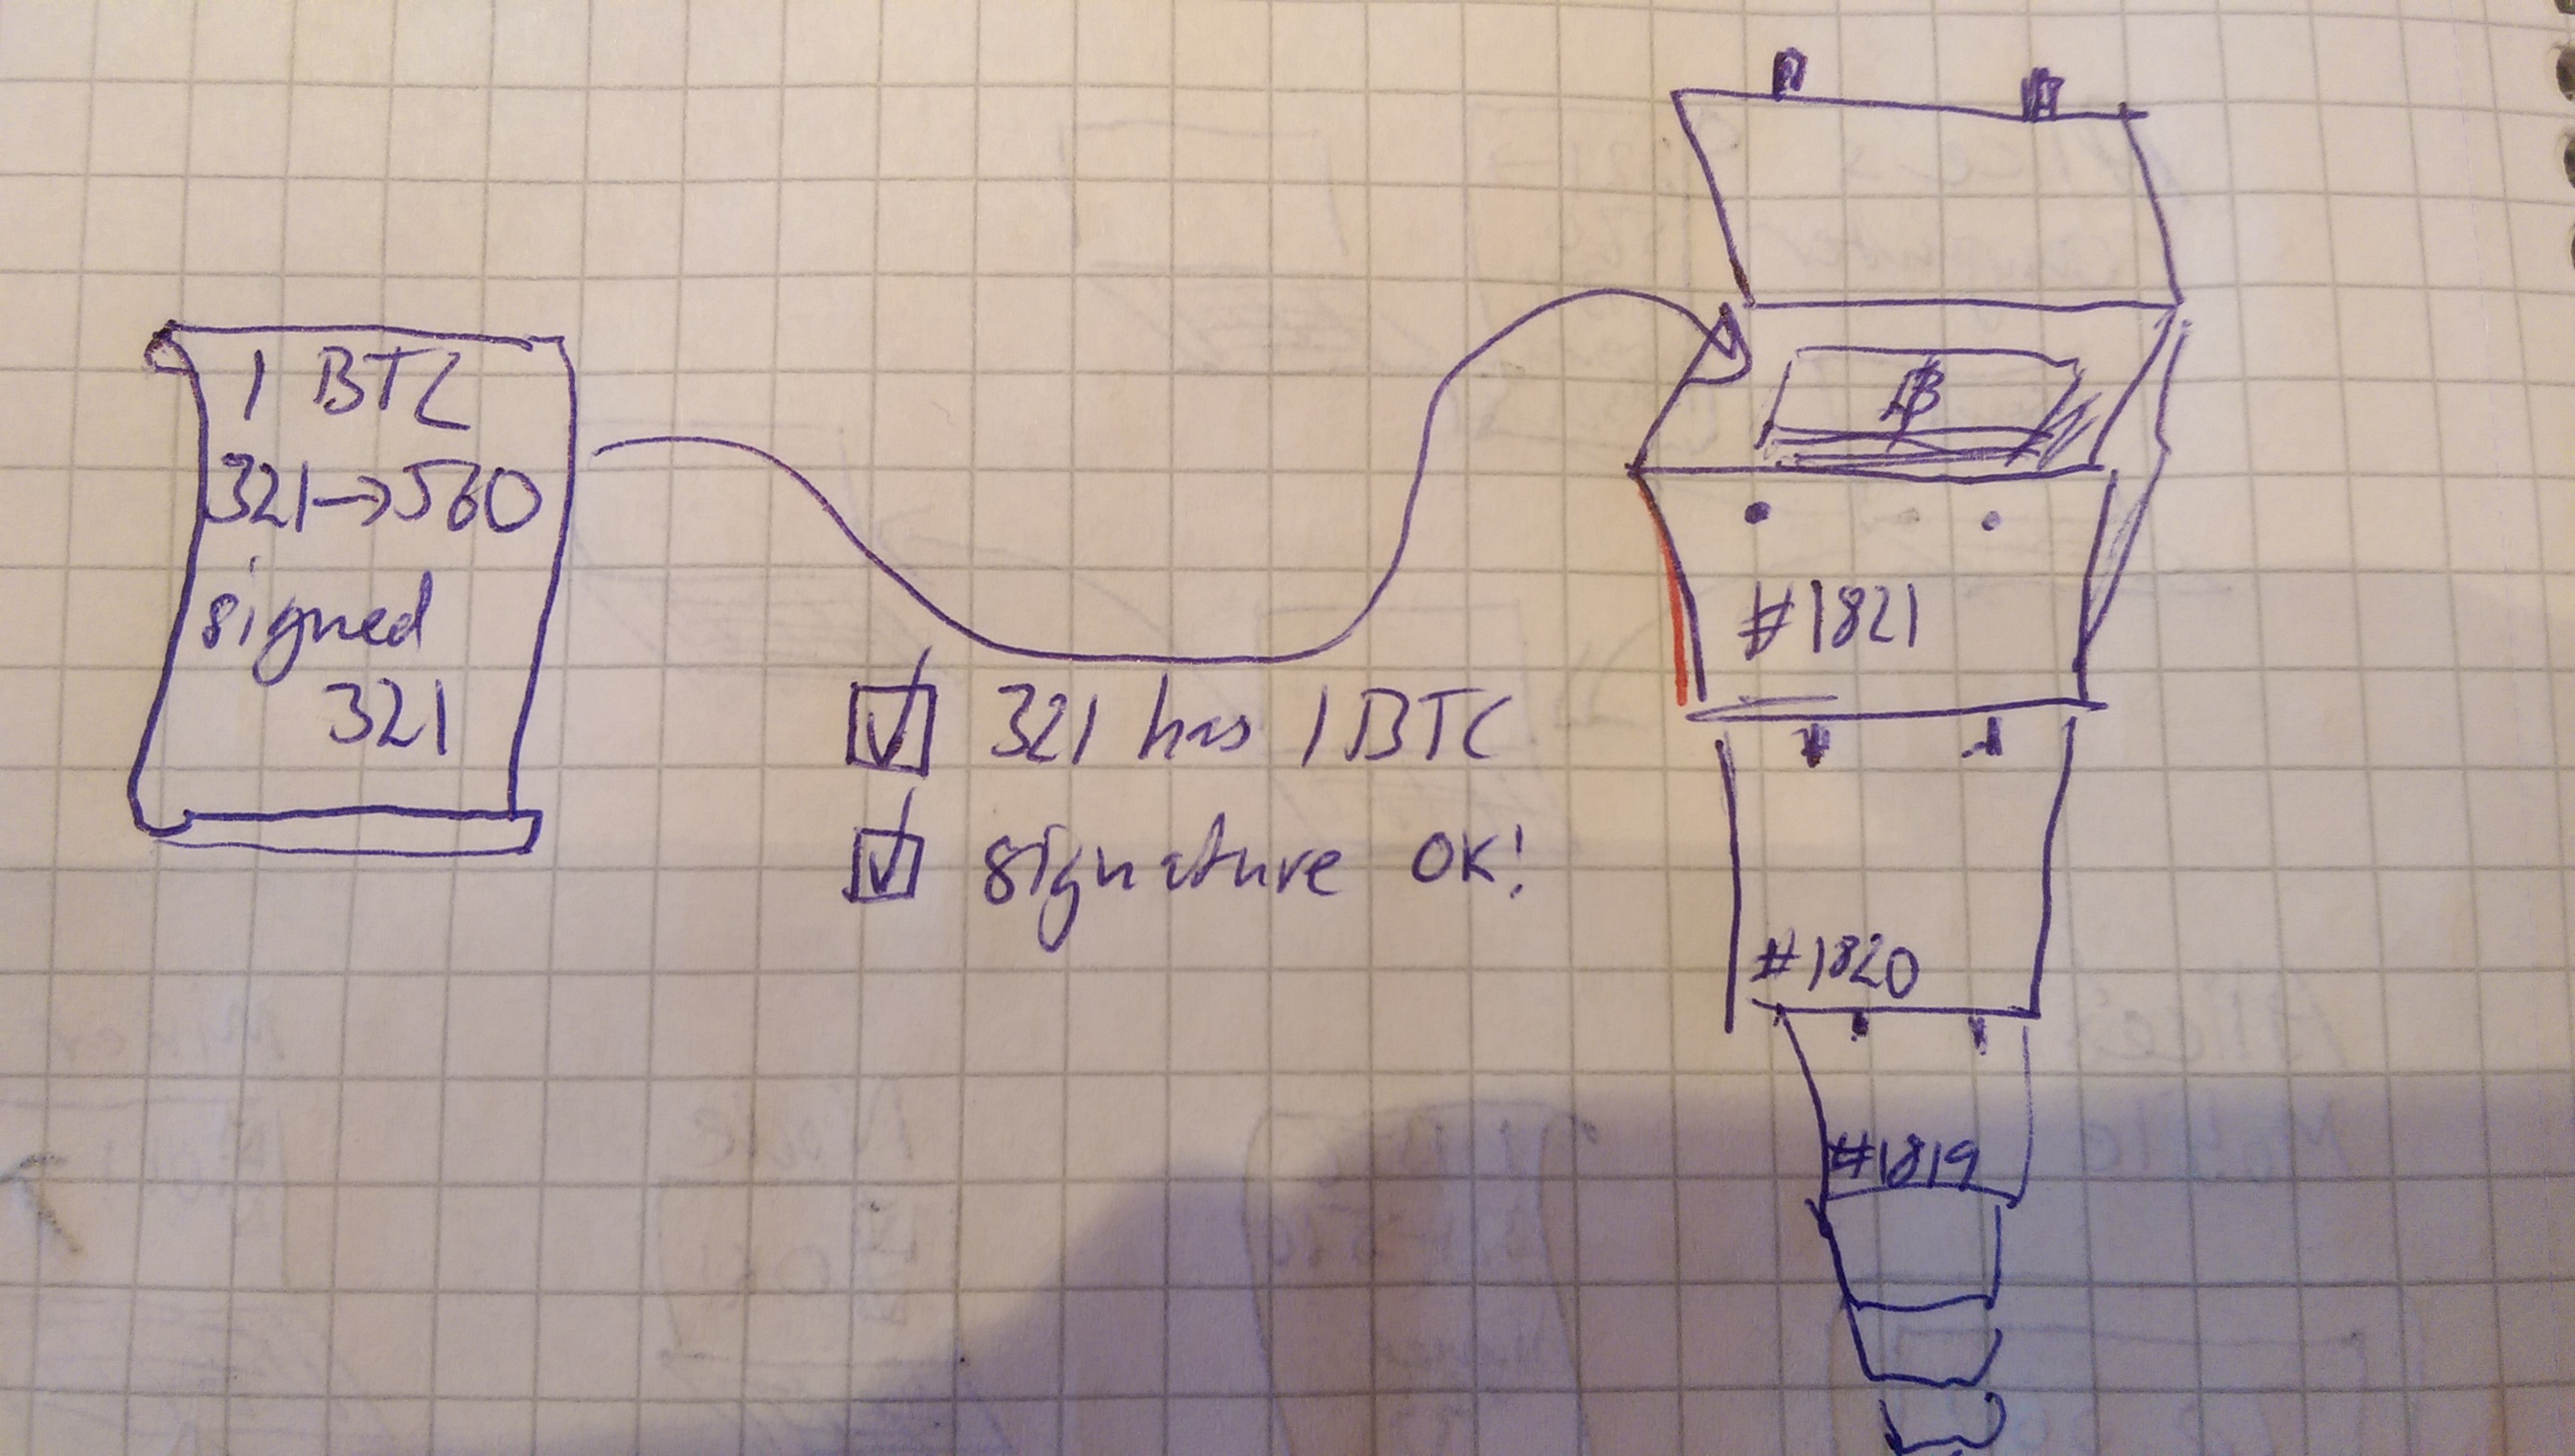 1 BTC
321→560
signed
321
☑ 321 has 1 BTC
☑ signature OK!
₿
#1821
#1820
#1819